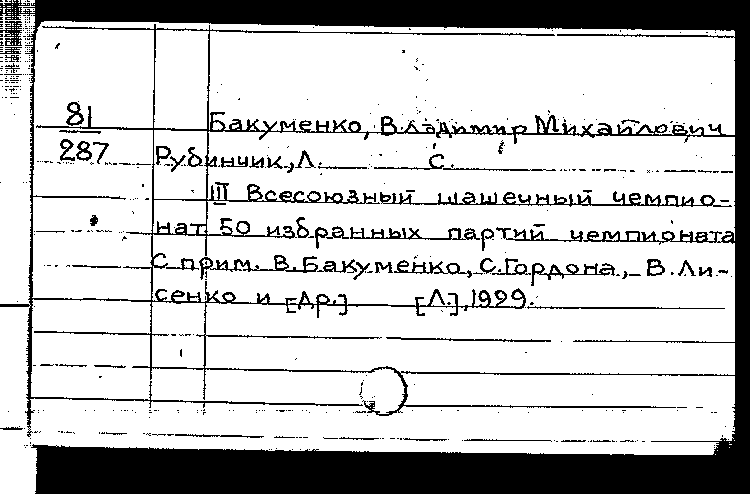 81 Бакуменко, Владимир Михайлович
287 Рубинчик, Л. С.
III Всесоюзный шашечный чемпио-
нат 50 избранных партий чемпионата
С прим. В. Бакуменко, С. Гордона, В. Ли-
сенко и [др.] [Л.], 1929.